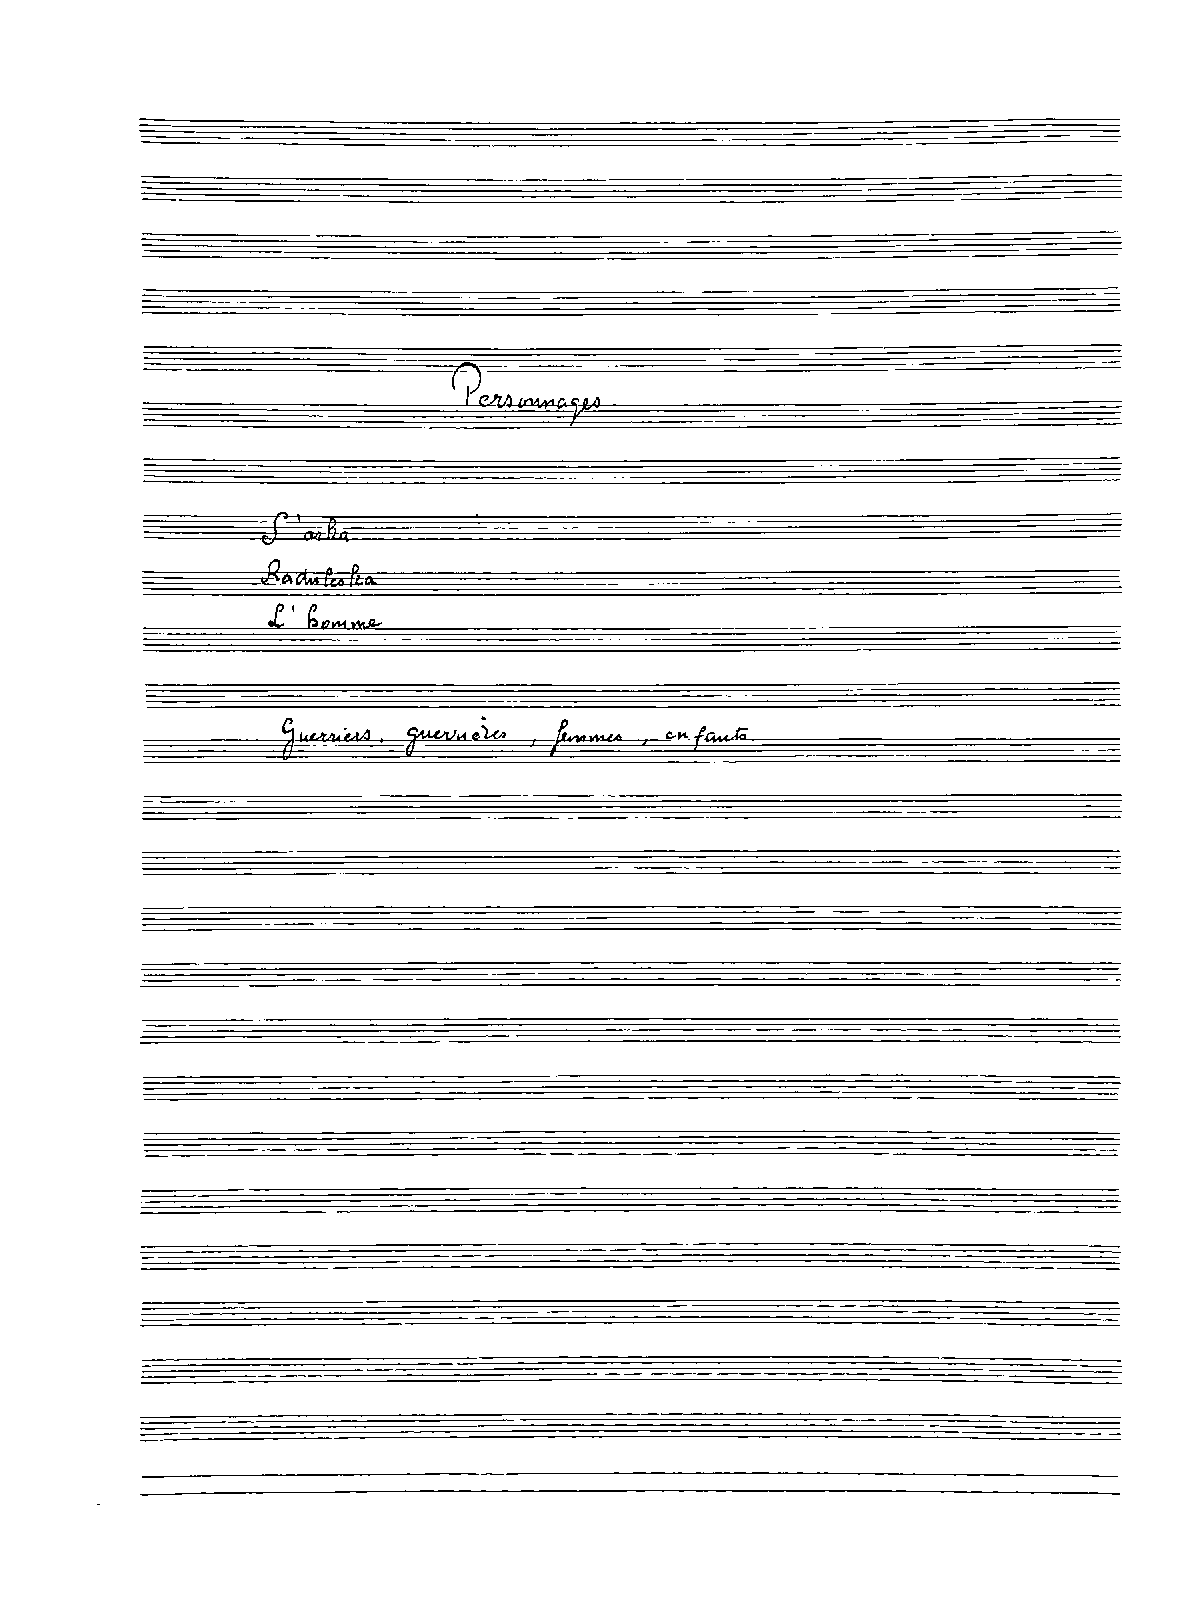 Personnages
S'arka
L'homme
Guerriers, guerrières, femmes, enfants